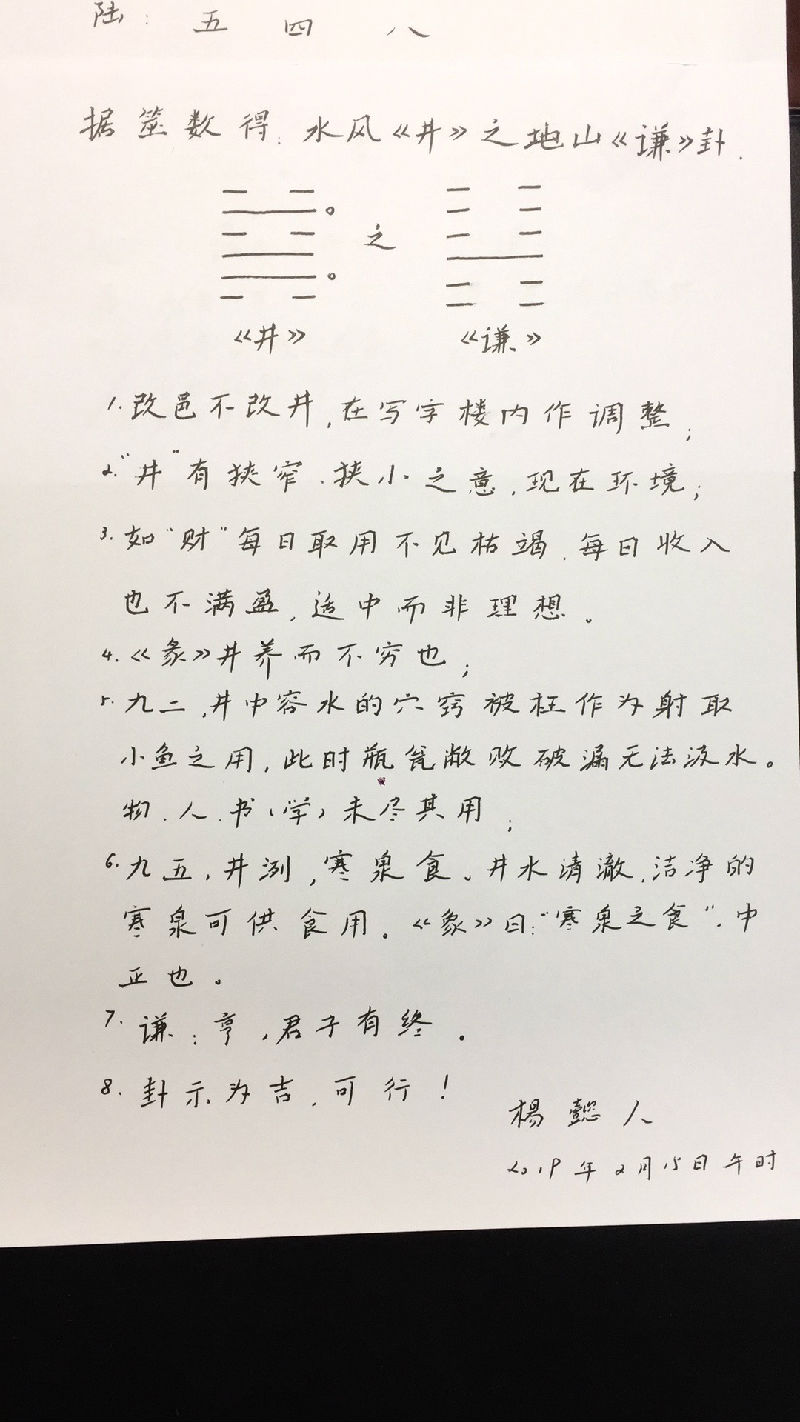 陆: 五 四 八
据筮数得: 水风《井》之地山《谦》卦.
之
《井》 《谦》
1. 改邑不改井,在写字楼内作调整;
2. "井"有狭窄.狭小之意,现在环境;
3. 如"财"每日取用不见枯竭.每日收入
也不满盈,适中而非理想。
4. 《彖》井养而不穷也;
5. 九二,井中容水的穴窍被枉作为射取
小鱼之用,此时瓶瓮敝败破漏无法汲水。
物.人.书(学)未尽其用;
6. 九五,井洌,寒泉食。井水清澈,洁净的
寒泉可供食用。《象》曰:"寒泉之食",中
正也。
7. 谦:亨,君子有终。
8. 卦示为吉,可行!
杨懿人
2019年2月15日午时